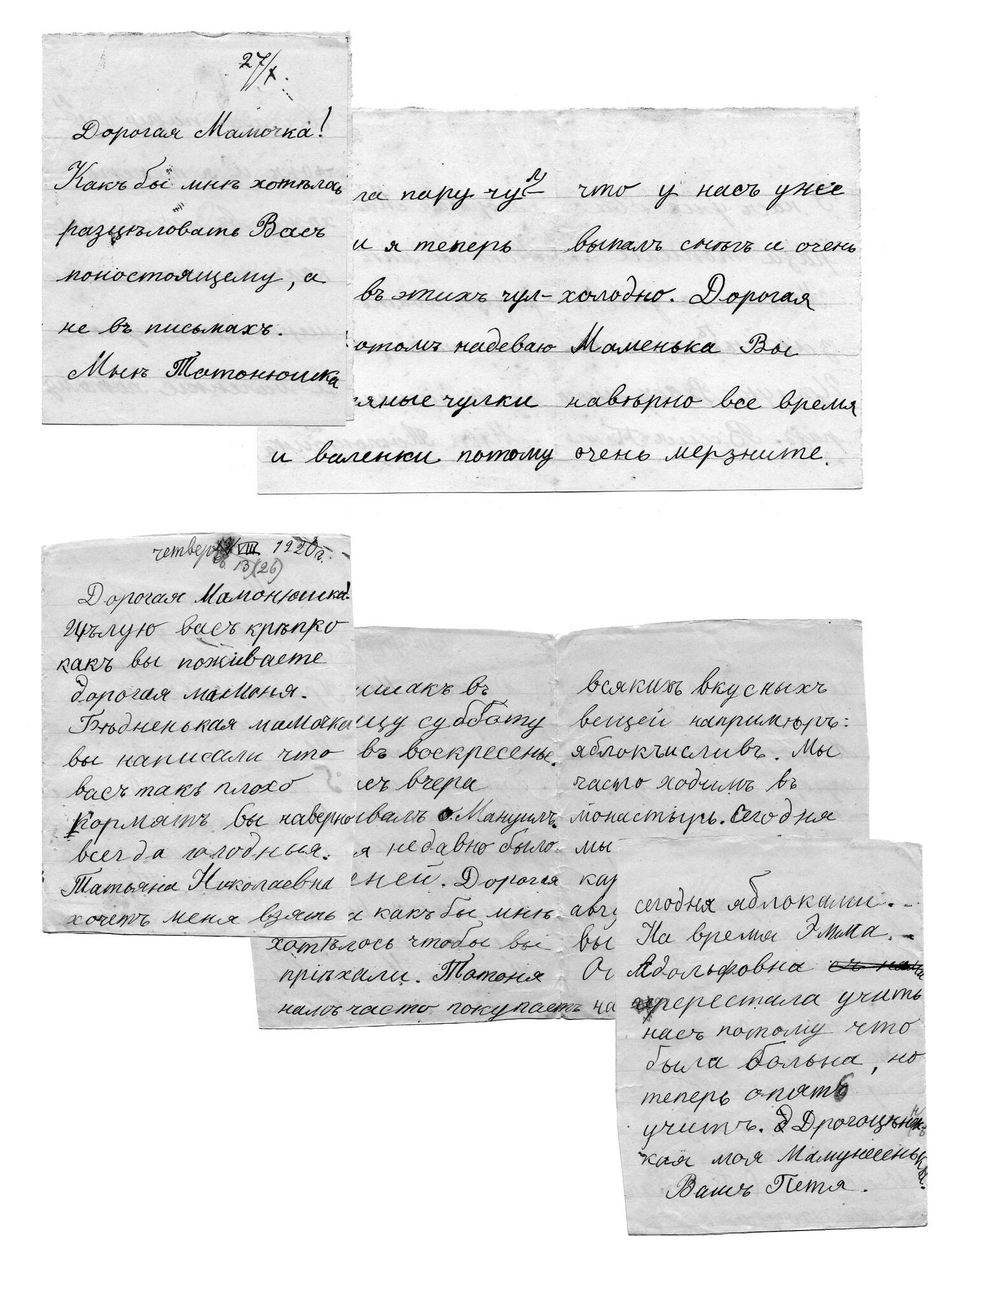 27/X.
Дорогая Мамочка!
Какъ бы мнѣ хотѣлось
разцѣловать Васъ
понастоящему, а
не въ письмахъ.
Мнѣ Татонюшка
ла пару чул-
и я теперь
въ этихъ чул-
отомъ надеваю
яные чулки
и валенки потому
что у насъ уже
выпалъ снѣгъ и очень
холодно. Дорогая
Маменька Вы
навѣрно все время
очень мерзните.
четверг VIII 1920г.
13(26)
Дорогая Мамонюшка!
Цѣлую васъ крѣпко
какъ вы поживаете
дорогая мамоня.
Бѣдненькая мамочка
вы написали что
васъ такъ плохо
кормятъ вы наверно
всегда голодныя.
Татьяна Николаевна
хочетъ меня взять
въ
щу субботу
въ воскресень.
съ вчера
валъ о. Мануилъ.
я недавно было
ней. Дорогая
какъ бы мнѣ
хотѣлось чтобы вы
приѣхали. Татоня
намъ часто покупаетъ
всякихъ вкусныхъ
вещей напримѣръ:
яблокъ сливъ. Мы
часто ходимъ въ
монастырь. Сегодня
мы
кар
авгу
вы
на
сегодня яблоками.
На время Эмма
Адольфовна съ нами
перестала учить
насъ потому что
была больна, но
теперь опять
учитъ. Драгоцѣннень-
кая моя Мамунесенька.
Вашъ Петя.